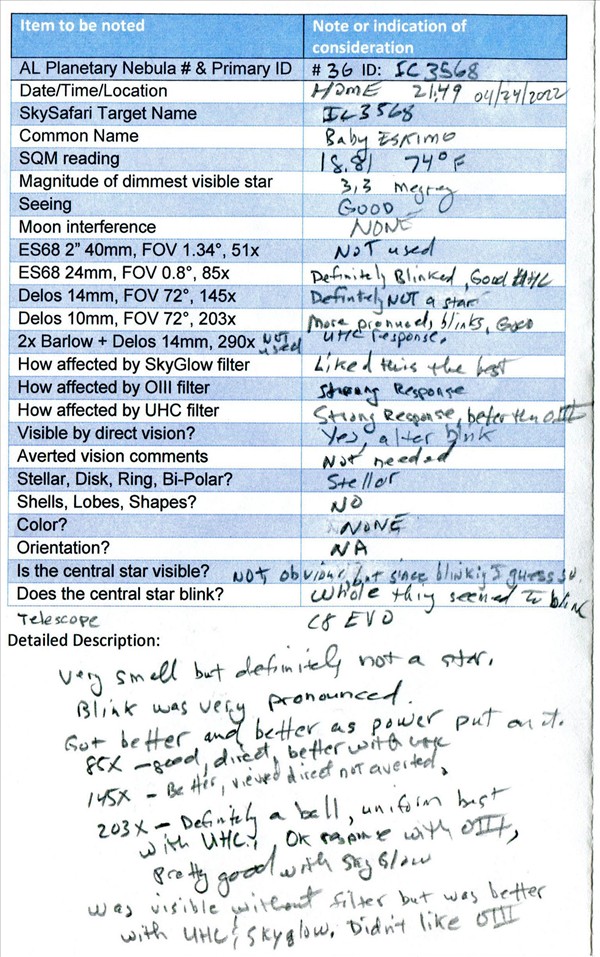 Item to be noted Note or indication of
consideration
AL Planetary Nebula # & Primary ID # 36 ID: IC 3568
Date/Time/Location HOME 21:49 04/24/2022
SkySafari Target Name IC 3568
Common Name Baby ESKIMO
SQM reading 18.81 74° F
Magnitude of dimmest visible star 3,3 megrez
Seeing GOOD
Moon interference NONE
ES68 2” 40mm, FOV 1.34°, 51x NOT used
ES68 24mm, FOV 0.8°, 85x Definitely Blinked, Good UHC
Delos 14mm, FOV 72°, 145x Definitely NOT a star
Delos 10mm, FOV 72°, 203x More pronounced, blinks, Good
2x Barlow + Delos 14mm, 290x NOT used UHC response.
How affected by SkyGlow filter Liked this the best
How affected by OIII filter Strong Response
How affected by UHC filter Strong Response, better than OIII
Visible by direct vision? Yes, after blink
Averted vision comments Not needed
Stellar, Disk, Ring, Bi-Polar? Stellar
Shells, Lobes, Shapes? NO
Color? NONE
Orientation? NA
Is the central star visible? NOT obvious, but since blinking I guess so.
Does the central star blink? Whole thing seemed to blink
Telescope C8 EVO
Detailed Description:
Very small but definitely not a star.
Blink was very pronounced.
Got better and better as power put on it.
85X - good, direct, better with UHC
145X - Better, viewed direct not averted,
203X - Definitely a ball, uniform best
with UHC. OK response with OIII,
Pretty good with SkyGlow
was visible without filter but was better
with UHC & Skyglow. Didn't like OIII